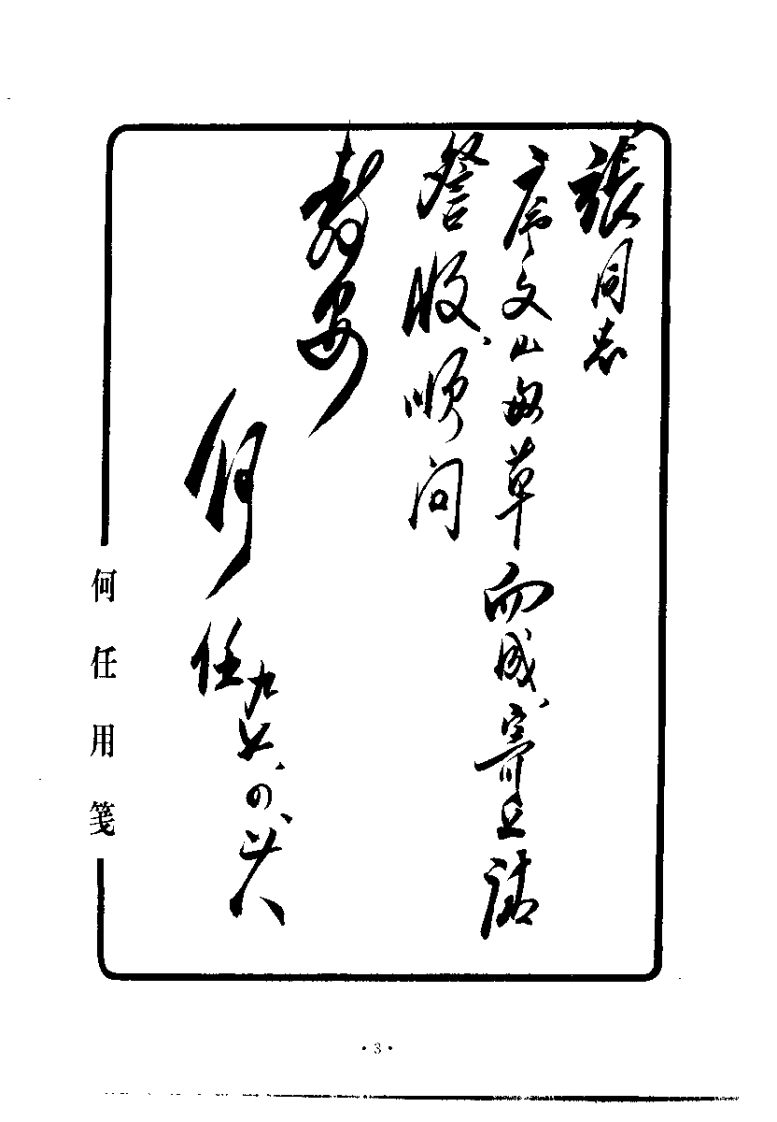 張同志
序文匆草而成、寄上請
詧收、順问
著安
何任 九七、四、廿八
何任用箋
·3·